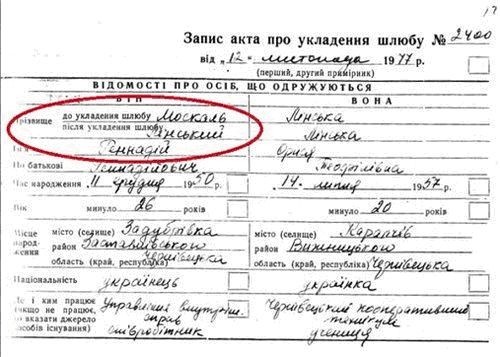 Запис акта про укладення шлюбу № 2400
від „12" листопада 1977 р.
(перший, другий примірник)
ВІДОМОСТІ ПРО ОСІБ, ЩО ОДРУЖУЮТЬСЯ
ВІН ВОНА
Прізвище до укладення шлюбу Москаль Лінська
після укладення шлюбу Лінський Лінська
Ім'я Геннадій
По батькові Геннадійович Теофілівна
Час народження 11 грудня 1950 14 липня 1957
Вік минуло 26 років минуло 20 років
Місце народження місто (селище) Задубрівка місто (селище) Карапчів
район Заставнівського район Вижницького
область (край, республіка) Чернівецька область (край, республіка) Чернівецька
Національність українець українка
Де і ким працює Управління внутрішн. Чернівецький кооперативний
(якщо не працює, справ технікум
то вказати джерело
засобів існування) співробітник учениця